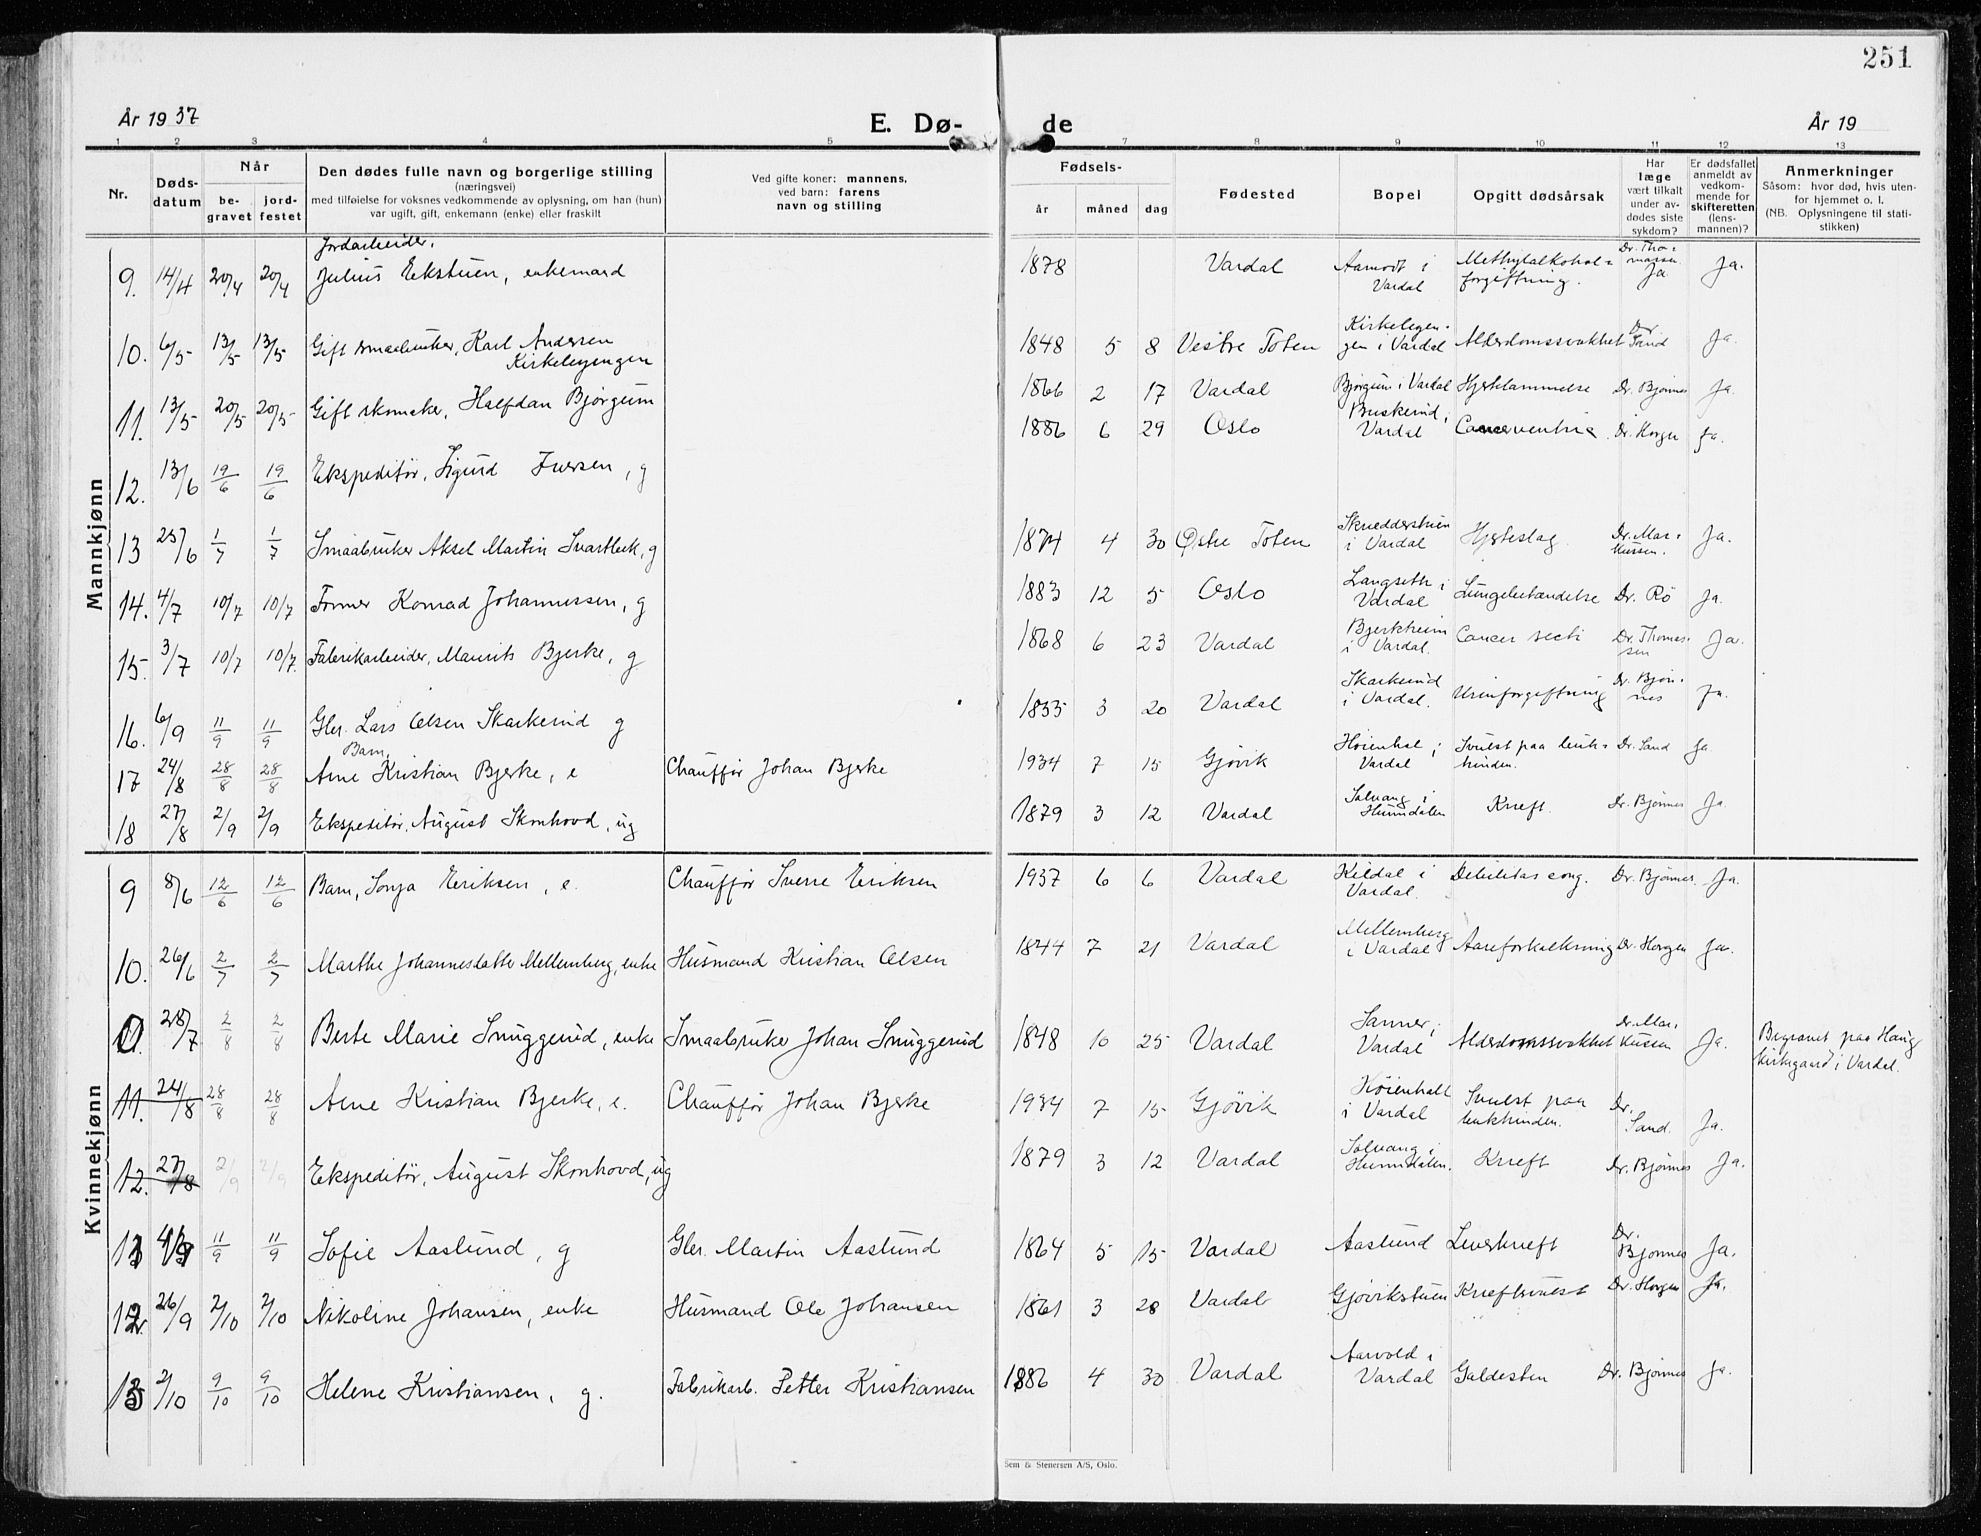 251
År 1937
E. Dø-
de
År 19
1 2 3 4 5 7 8 9 10 11 12 13
Nr.
Døds-
datum
Når
be-
gravet
jord-
festet
Den dødes fulle navn og borgerlige stilling
(næringsvei)
med tilføielse for voksnes vedkommende av oplysning, om han (hun)
var ugift, gift, enkemann (enke) eller fraskilt
Ved gifte koner: mannens,
ved barn: farens
navn og stilling
Fødsels-
år måned dag
Fødested
Bopel
Opgitt dødsårsak
Har
læge
vært tilkalt
under av-
dødes siste
sykdom?
Er dødsfallet
anmeldt av
vedkom-
mende for
skifteretten
(lens-
mannen)?
Anmerkninger
Såsom: hvor død, hvis uten-
for hjemmet o. l.
(NB. Oplysningene til stati-
stikken)
Mannkjønn
Jordarbeider,
9. 14/4 20/4 20/4 Julius Eekstuen, enkemand 1878 Vardal Aamodt i Vardal Methylalkohol= forgiftning. Dr. Tho= massen Ja Ja.
10. 6/5 13/5 13/5 Gift smaabruker, Karl Andersen Kirkelegengen 1848 5 8 Vestre Toten Kirkelegen- gen i Vardal Alderdomssvakhet Dr Sand Ja.
11. 13/5 20/5 20/5 Gift skomaker, Halfdan Bjørgum 1866 2 17 Vardal Bjørgum i Vardal Hjertelammelse Dr. Bjønnes Ja
12. 13/6 19/6 19/6 Ekspeditør, Sigurd Iversen, g 1886 6 29 Oslo Buskerud i Vardal Cancer ventric. Dr. Horgen Ja.
13 25/6 1/7 1/7 Smaabruker Aksel Martin Svartbek, g 1874 4 30 Østre Toten Skredderstuen i Vardal Hjerteslag. Dr. Mar= kussen. Ja.
14. 4/7 10/7 10/7 Former Konrad Johannessen, g 1883 12 5 Oslo Langseth i Vardal Lungebetændelse Dr. Rö Ja.
15. 3/7 10/7 10/7. Fabrikarbeider, Maurits Bjerke, g 1868 6 23 Vardal Bjerkheim i Vardal. Cancer recti Dr. Thomas- sen Ja.
16. 6/9 11/9 11/9 Gbr. Lars Olsen Skarkerud g 1855 3 20 Vardal Skarkerud i Vardal. Urinforgiftning Dr. Bjøn- nes Ja.
Barn,
17 24/8 28/8 28/8 Arne Kristian Bjerke, e Chauffør Johan Bjerke 1934 7 15 Gjøvik Høienhal i Vardal Svulst paa buk= hinden. Dr. Sand Ja
18 27/8 2/9 2/9 Ekspeditør, August Skonhovd, ug 1879 3 12 Vardal Solvang i Hunndalen Kreft. Dr. Bjønnes Ja.
Kvinnekjønn
9 8/6 12/6 12/6 Barn, Sonja Eriksen, e. Chauffør Sverre Eriksen 1937 6 6 Vardal Kildal i Vardal. Debilitas cong. Dr. Bjønnes. Ja.
10. 26/6 2/7 2/7 Marthe Johannesdatter Mellemberg, enke Husmand Kristian Olsen 1844 7 21 Vardal Mellemberg i Vardal Aareforkalkning Dr. Horgen Ja.
28/7 2/8 2/8 Berte Marie Snuggerud, enke Smaabruker Johan Snuggerud 1848 10 25 Vardal Sanner i Vardal Alderdomssvakhet Dr. Mar= kussen Ja. Begravet paa Haug kirkegaard i Vardal.
11. 24/8 28/8 28/8 Arne Kristian Bjerke, e. Chauffør Johan Bjerke 1934 7 15 Gjøvik Høienhall i Vardal Svulst paa bukhinden. Dr. Sand. Ja.
12. 27/8 2/9 2/9 Ekspeditør, August Skonhovd, ug 1879 3 12 Vardal Solvang i Hunndalen. Kreft Dr. Bjønnes Ja.
11/9 11/9 Sofie Aaslund, g Gbr. Martin Aaslund 1864 5 15 Vardal Aaslund Leverkreft Dr. Bjønnes Ja.
12. 26/9 2/10 2/10 Nikoline Johansen, enke Husmand Ole Johansen 1861 3 28 Vardal Gjøvikstuen Kreftsvulst Dr. Horgen Ja.
13 2/10 9/10 9/10 Helene Kristiansen, g. Fabrikarb. Petter Kristiansen 1886 4 30 Vardal Aarvold i Vardal Galdesten Dr. Bjønnes Ja.
Sem & Stenersen A/S, Oslo.